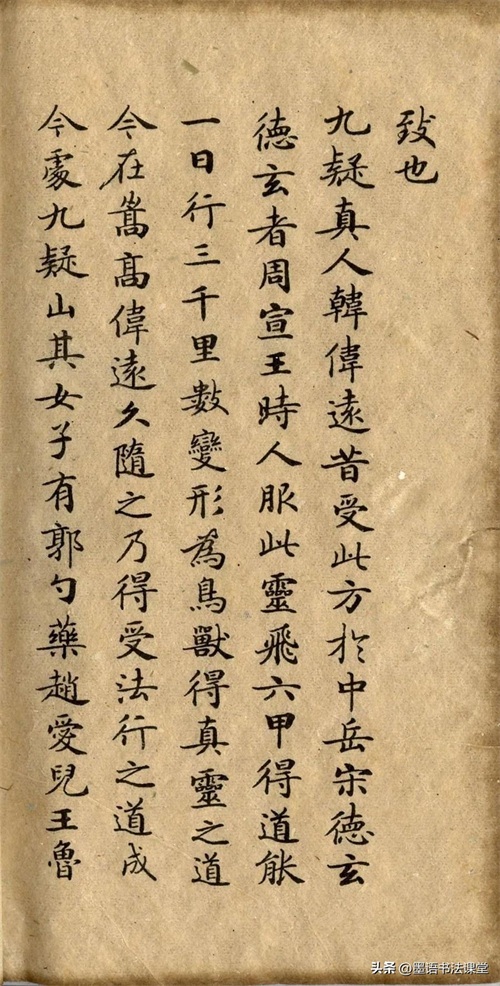 致也
九疑真人韓偉遠昔受此方於中岳宋德玄
德玄者周宣王時人服此靈飛六甲得道能
一日行三千里數變形為鳥獸得真靈之道
今在嵩高偉遠久隨之乃得受法行之道成
今處九疑山其女子有郭勺藥趙愛兒王魯
头条 @墨语书法课堂